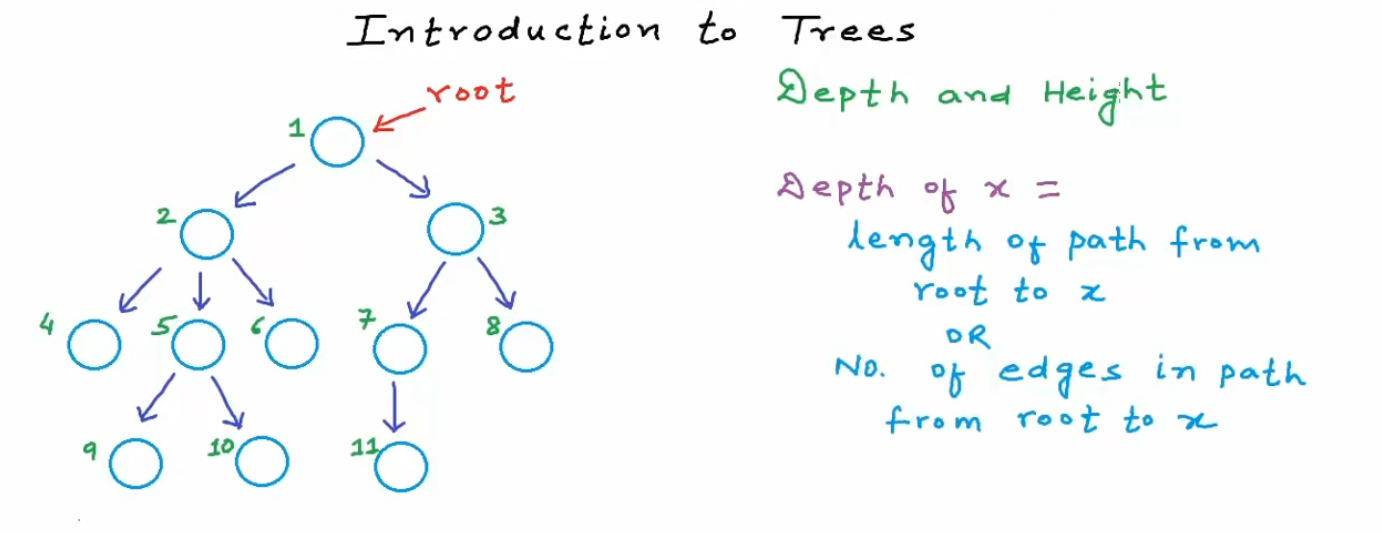 Introduction to Trees
root
1
2
3
4
5
6
7
8
9
10
11
Depth and Height
Depth of x =
length of path from
root to x
OR
No. of edges in path
from root to x